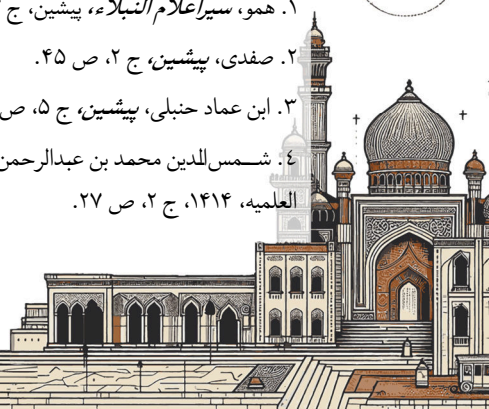 ۱. همو، سیراعلام النبلاء، پیشین، ج
۲. صفدی، پیشین، ج ۲، ص ۴۵.
۳. ابن عماد حنبلی، پیشین، ج ۵، ص
٤. شـمس‌الدین محمد بن عبدالرحمن
العلمیه، ۱۴۱۴، ج ۲، ص ۲۷.